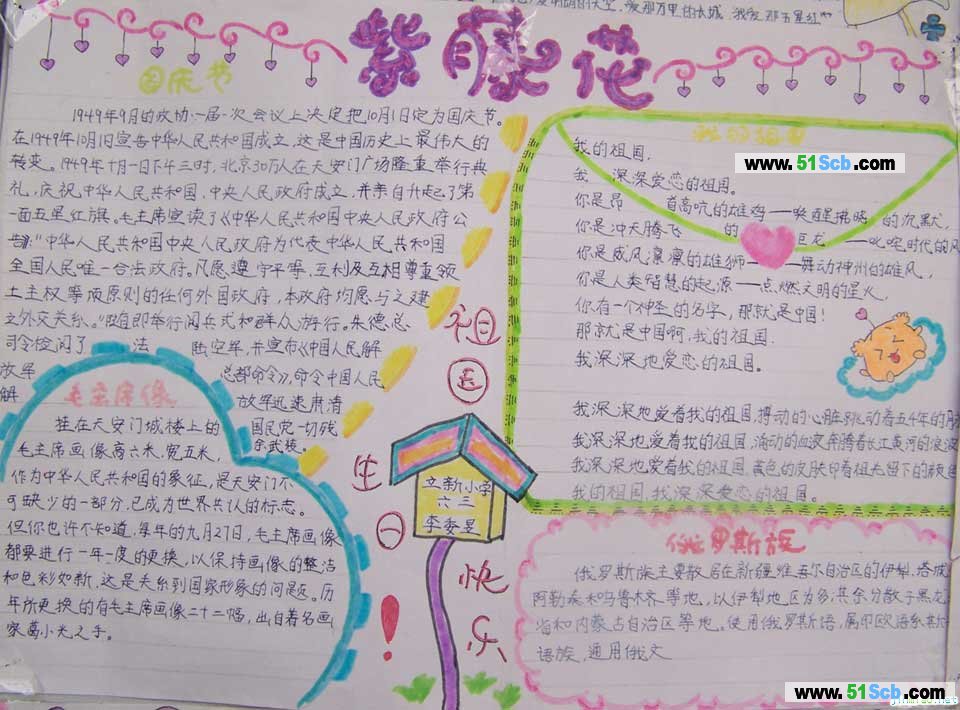 爱那万里的长城,我爱那五星红
紫藤花
国庆节
1949年9月的政协一届一次会议上决定把10月1日定为国庆节。
在1949年10月1日宣告中华人民共和国成立,这是中国历史上最伟大的
转变。1949年十月一日下午三时,北京30万人在天安门广场隆重举行典
礼,庆祝中华人民共和国,中央人民政府成立,并亲自升起了第
一面五星红旗。毛主席宣读了《中华人民共和国中央人民政府公
告》:"中华人民共和国中央人民政府为代表中华人民共和国
全国人民唯一合法政府。凡愿遵守平等、互利及互相尊重领
土主权等项原则的任何外国政府,本政府均愿与之建
之外交关系。"随即举行阅兵式和群众游行。朱德总
司令检阅了 法 陆空军,并宣布《中国人民解
放军 总部命令》,命令中国人民
解 放军迅速肃清
国民党一切残
余武装。
毛主席像
挂在天安门城楼上的
毛主席画像高六米,宽五米,
作为中华人民共和国的象征,是天安门不
可缺少的一部分,已成为世界共认的标志。
但你也许不知道,每年的九月27日,毛主席画像
都要进行一年一度的更换,以保持画像的整洁
和色彩如新,这是关系到国家形象的问题。历
年所更换的有毛主席画像二十二幅,出自着名画
家葛小光之手。
祖
国
生
日
快
乐
!
立新小学
六三
李委昱
我的祖国
www.51Scb.com
我的祖国,
我 深深爱恋的祖国。
你是昂 首高吭的雄鸡——唤醒拂晓 的沉默,
你是冲天腾飞 的 巨龙——叱咤时代的风
你是威风凛凛的雄狮——舞动神州的雄风,
你是人类智慧的起源——点燃文明的星火,
你有一个神圣的名字,那就是中国!
那就是中国啊,我的祖国.
我深深地爱恋的祖国。
我深深地爱着我的祖国,搏动的心脏跳动着五千年的
我深深地爱着我的祖国,涌动的血液奔腾着长江黄河的浪
我深深地爱着我的祖国,黄色的皮肤印着祖先留下的颜色
我的祖国,我深深爱恋的祖国。
俄罗斯族
俄罗斯族主要散居在新疆维吾尔自治区的伊犁,塔城
阿勒泰和乌鲁木齐等地,以伊犁地区为多,其余分散于黑龙
省和内蒙古自治区等地。使用俄罗斯语,属印欧语系斯
语族,通用俄文
www.51Scb.com